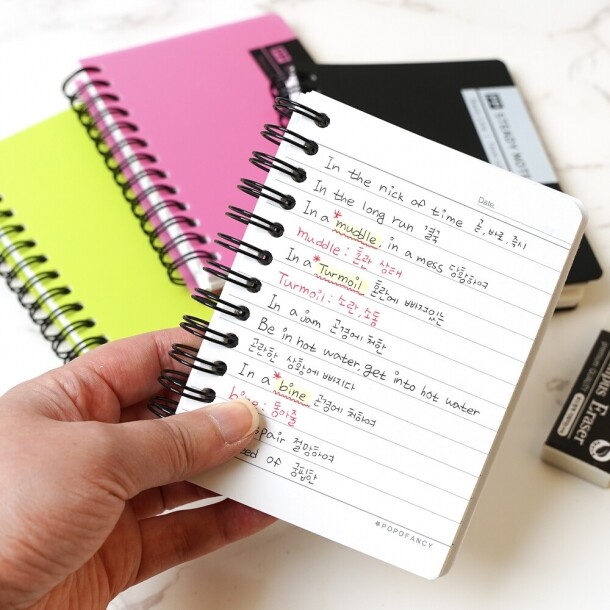 STEADY NOTE
Date.
In the nick of time 곧, 바로, 즉시
In the long run 결국
In a *muddle, in a mess 당황하여
muddle : 혼란 상태
In a *Turmoil 혼란에 빠져있는
Turmoil : 소란, 소동
In a jam 곤경에 처한
Be in hot water, get into hot water
곤란한 상황에 빠지다
In a *bine 곤경에 처하여
bine : 동아줄
spair 절망하여
eed of 궁핍한
*POPOFANCY
us Eraser